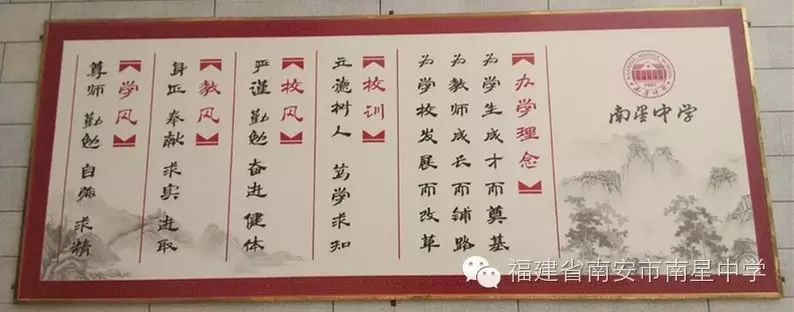 南星中学
办学理念
为学生成才而奠基
为教师成长而铺路
为学校发展而改革
校训
立德树人 笃学求知
校风
严谨 勤勉 奋进 健体
教风
身正 奉献 求实 进取
学风
尊师 勤勉 自强 求精
福建省南安市南星中学